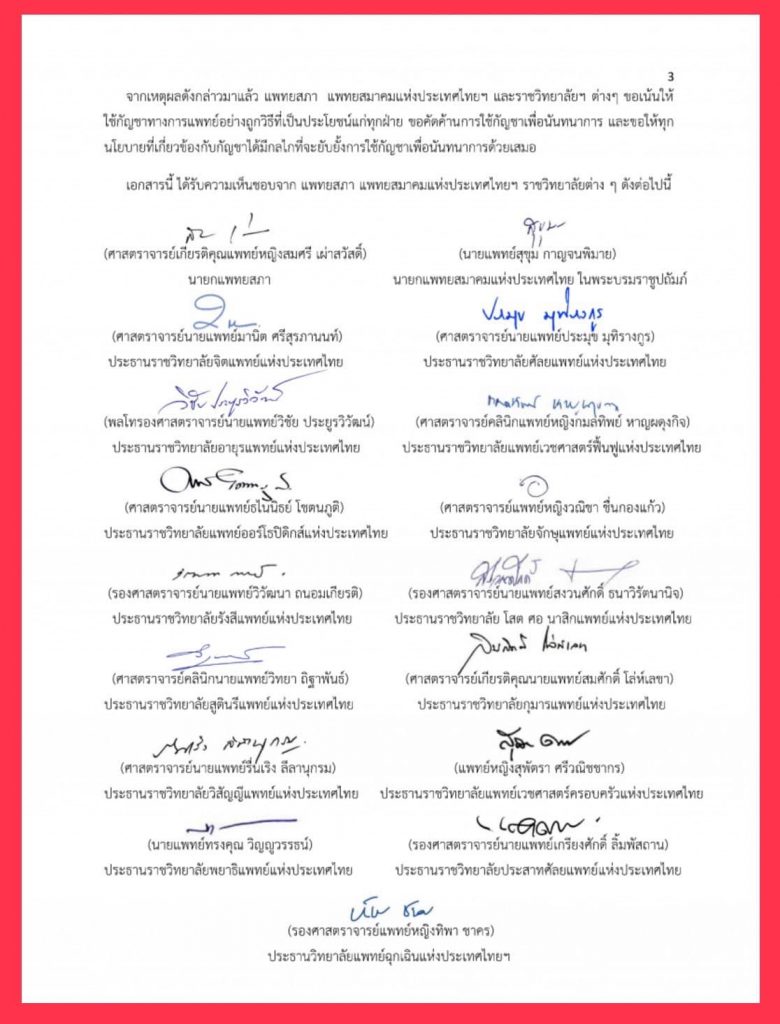 3
จากเหตุผลดังกล่าวมาแล้ว แพทยสภา แพทยสมาคมแห่งประเทศไทยฯ และราชวิทยาลัยฯ ต่างๆ ขอเน้นให้
ใช้กัญชาทางการแพทย์อย่างถูกวิธีที่เป็นประโยชน์แก่ทุกฝ่าย ขอคัดค้านการใช้กัญชาเพื่อนันทนาการ และขอให้ทุก
นโยบายที่เกี่ยวข้องกับกัญชาได้มีกลไกที่จะยับยั้งการใช้กัญชาเพื่อนันทนาการด้วยเสมอ
เอกสารนี้ ได้รับความเห็นชอบจาก แพทยสภา แพทยสมาคมแห่งประเทศไทยฯ ราชวิทยาลัยต่าง ๆ ดังต่อไปนี้
(ศาสตราจารย์เกียรติคุณแพทย์หญิงสมศรี เผ่าสวัสดิ์) (นายแพทย์สุขุม กาญจนพิมาย)
นายกแพทยสภา นายกแพทยสมาคมแห่งประเทศไทย ในพระบรมราชูปถัมภ์
ประมุข มุทิรางกูร
(ศาสตราจารย์นายแพทย์มานิต ศรีสุรภานนท์) (ศาสตราจารย์นายแพทย์ประมุข มุทิรางกูร)
ประธานราชวิทยาลัยจิตแพทย์แห่งประเทศไทย ประธานราชวิทยาลัยศัลยแพทย์แห่งประเทศไทย
วิชัย ประยูรวิวัฒน์
(พลโทรองศาสตราจารย์นายแพทย์วิชัย ประยูรวิวัฒน์) (ศาสตราจารย์คลินิกแพทย์หญิงกมลทิพย์ หาญผดุงกิจ)
ประธานราชวิทยาลัยอายุรแพทย์แห่งประเทศไทย ประธานราชวิทยาลัยแพทย์เวชศาสตร์ฟื้นฟูแห่งประเทศไทย
(ศาสตราจารย์นายแพทย์ธไนนิธย์ โชตนภูติ) (ศาสตราจารย์แพทย์หญิงวณิชา ชื่นกองแก้ว)
ประธานราชวิทยาลัยแพทย์ออร์โธปิดิกส์แห่งประเทศไทย ประธานราชวิทยาลัยจักษุแพทย์แห่งประเทศไทย
(รองศาสตราจารย์นายแพทย์วิวัฒนา ถนอมเกียรติ) (รองศาสตราจารย์นายแพทย์สงวนศักดิ์ ธนาวิรัตนานิจ)
ประธานราชวิทยาลัยรังสีแพทย์แห่งประเทศไทย ประธานราชวิทยาลัย โสต ศอ นาสิกแพทย์แห่งประเทศไทย
(ศาสตราจารย์คลินิกนายแพทย์วิทยา ถิฐาพันธ์) (ศาสตราจารย์เกียรติคุณนายแพทย์สมศักดิ์ โล่ห์เลขา)
ประธานราชวิทยาลัยสูตินรีแพทย์แห่งประเทศไทย ประธานราชวิทยาลัยกุมารแพทย์แห่งประเทศไทย
(ศาสตราจารย์นายแพทย์รื่นเริง ลีลานุกรม) (แพทย์หญิงสุพัตรา ศรีวณิชชากร)
ประธานราชวิทยาลัยวิสัญญีแพทย์แห่งประเทศไทย ประธานราชวิทยาลัยแพทย์เวชศาสตร์ครอบครัวแห่งประเทศไทย
(นายแพทย์ทรงคุณ วิญญูวรรธน์) (รองศาสตราจารย์นายแพทย์เกรียงศักดิ์ ลิ้มพัสถาน)
ประธานราชวิทยาลัยพยาธิแพทย์แห่งประเทศไทย ประธานราชวิทยาลัยประสาทศัลยแพทย์แห่งประเทศไทย
(รองศาสตราจารย์แพทย์หญิงทิพา ชาคร)
ประธานวิทยาลัยแพทย์ฉุกเฉินแห่งประเทศไทยฯ